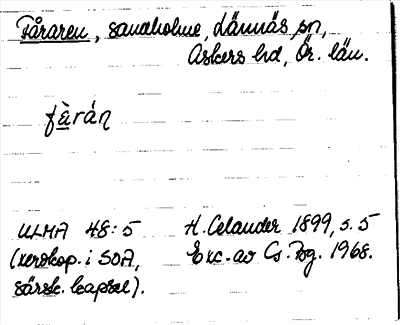 Fåraren, sandholme, Lännäs sn,
Askers hd, Ör. län.
fὲrán
ULMA 48:5 H. Celander 1899, s. 5
(xerokop. i SOA, Exc. av Cs. Bg. 1968.
särsk. kapsel).